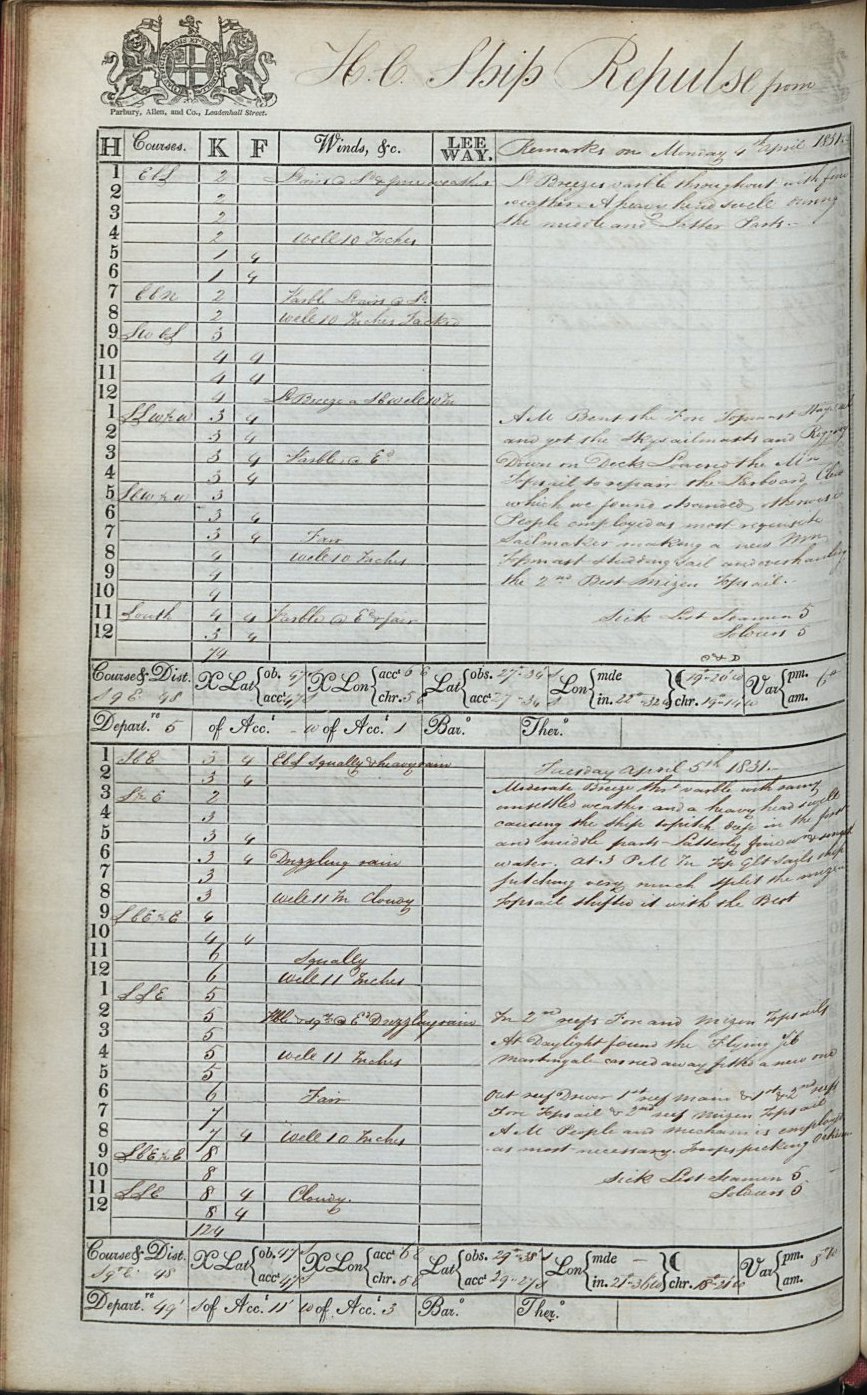 H. C. Ship Repulse from
Parbury, Allen, and Co., Leadenhall Street.
H Courses. K F Winds, &c. LEE WAY. Remarks on Monday 4th April 1831.
1 EbS 2 weather Lt Breezes varble throughout with fine
2 2 weather. A heavy head swell during
3 2 the middle and Latter Parts.
4 2 Well 10 Inches
5 1 4
6 1 4
7 EbN 2 Varble
8 2 Well 10 Inches Tacked
9 SWbS 3
10 4 4
11 4 4
12 4 Lt Breeze a SE well 10 In
1 SSW½W 3 4 AM Bent the Fore Topmast Stay
2 3 4 and got the Skysailmasts and Rigging
3 3 4 Varble @ Ed Down on Deck. Lowered the Mn
4 3 4 Topsail to repair the Larboard
5 SbW½W 3 which we found stranded otherwise
6 3 4 People employed as most requisite
7 3 4 Fair Sailmaker making a new Mn
8 4 Well 10 Inches Topmast studding Sail and overhauling
9 4 the 2nd Best Mizen Topsail.
10 4
11 South 4 4 Varble @ Ed & fair Sick List Seamen 5
12 3 4 Soldiers 5
74
O & D
Course & Dist. X Lat ob. acct X Lon acct 6 E chr. 5 E Lat obs. acct Lon mde in. 22°-32 chr. Var pm. am.
S 9 E 48
Depart.re 5 of Acc.t of Acc.t 1 Bar.o Ther.o
1 SbE 3 4 EbS Squally & heavy rain Tuesday April 5th 1831.
2 3 4
3 S½E 2 Moderate Breeze thrt varble with rainy
4 3 unsettled weather and a heavy head swell
5 3 4 causing the ship to pitch deep in the first
6 3 4 Drizzling rain and middle parts Latterly fine wr & smooth
7 3 water. At 3 PM In Top Glt Sails ship
8 3 Well 11 In Cloudy pitching very much split the mizen
9 SbE½E 4 Topsail shifted it with the Best
10 4 4
11 6 Squally
12 6 Well 11 Inches
1 SSE 5
2 5 Drizzling rain In 2nd reefs Fore and Mizen Topsails
3 5 At Daylight found the Flying Jib
4 5 Well 11 Inches Martingale carried away fitted a new one
5 5
6 6 Fair Out reef Driver 1st reef Main & 1st & 2nd reefs
7 7 Fore Topsail & 2nd reef Mizen Topsail
8 7 4 Well 10 Inches AM People and mechanics employed
9 SbE½E 8 as most necessary. Troops picking Oakum
10 8 Sick List Seamen 5
11 SSE 8 4 Cloudy. Soldiers 5
12 8 4
124
Course & Dist. X Lat ob. 47 S acct 47 S X Lon acct 6 E chr. 5 E Lat obs. 29°-38 S acct 29-27 S Lon mde in. 21°-36 W chr. Var pm. am.
Depart.re 49 S of Acc.t 11 W of Acc.t 3 Bar.o Ther.o